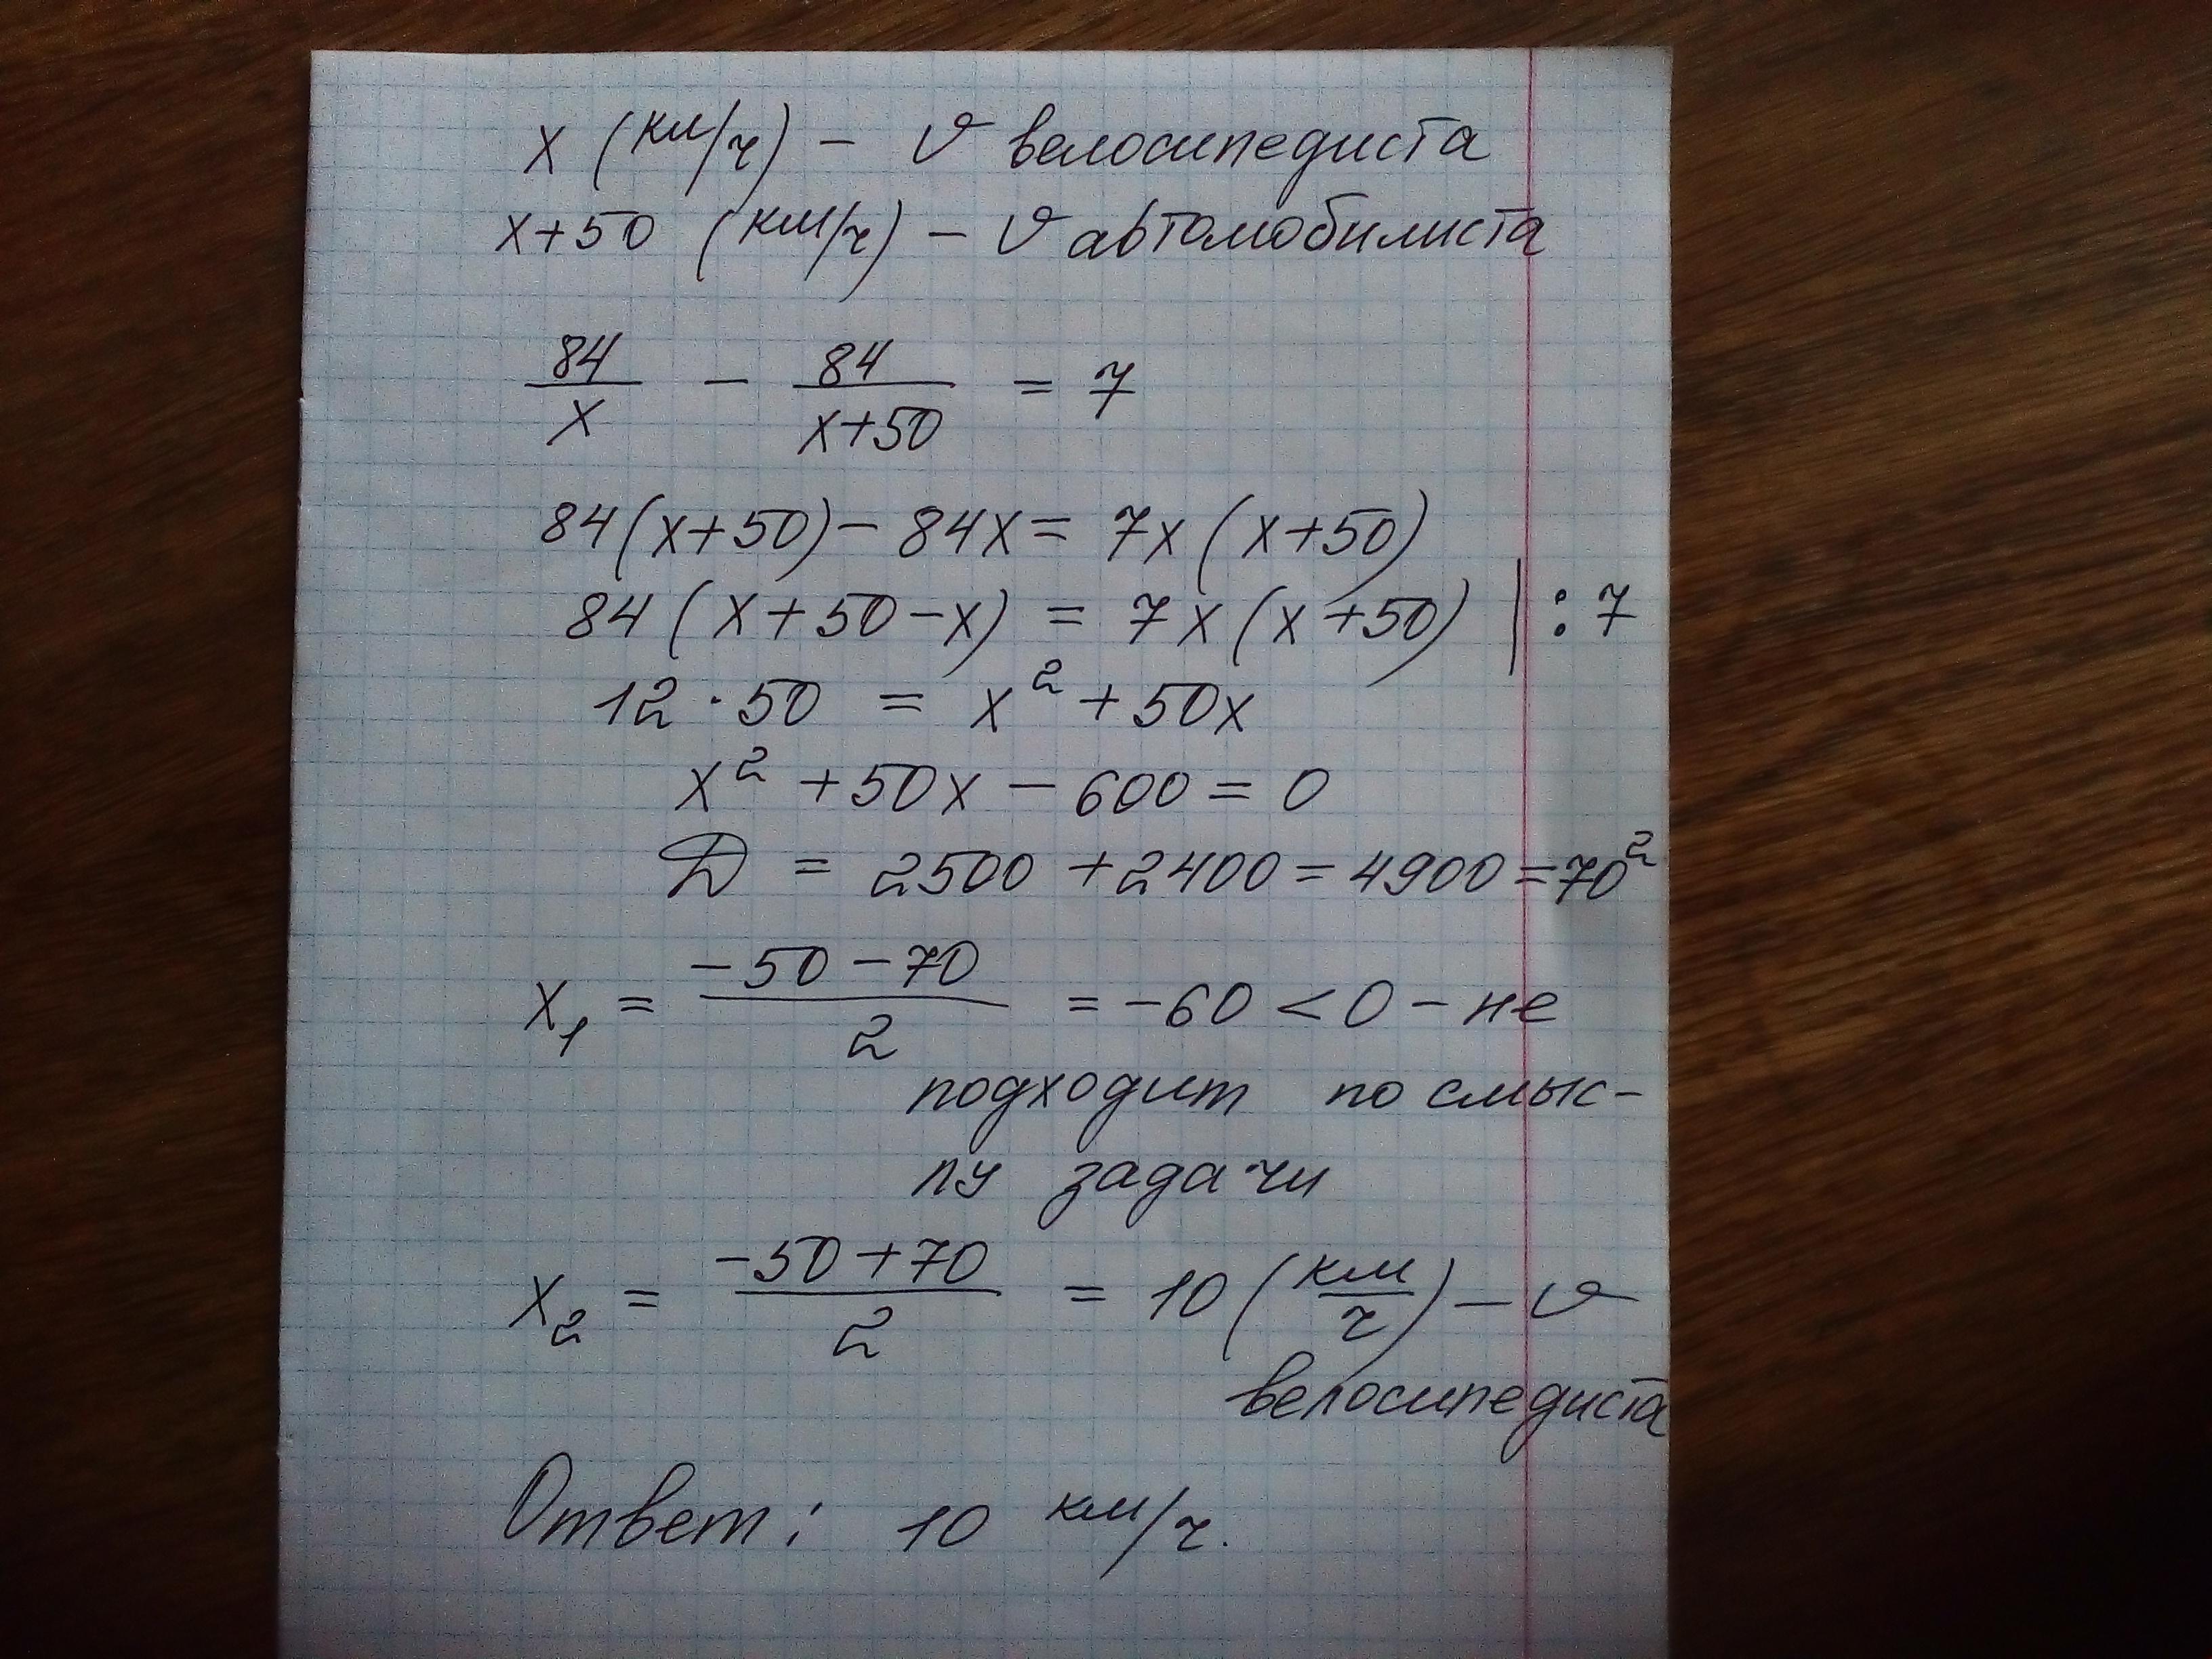 x (км/ч) – v велосипедиста
x+50 (км/ч) – v автомобилиста
84/x – 84/(x+50) = 7
84(x+50) – 84x = 7x(x+50)
84(x+50–x) = 7x(x+50) | : 7
12·50 = x² + 50x
x² + 50x – 600 = 0
D = 2500 + 2400 = 4900 = 70²
x₁ = (–50–70)/2 = –60 < 0 – не
подходит по смыс-
лу задачи
x₂ = (–50+70)/2 = 10 (км/ч) – v
велосипедиста
Ответ: 10 км/ч.